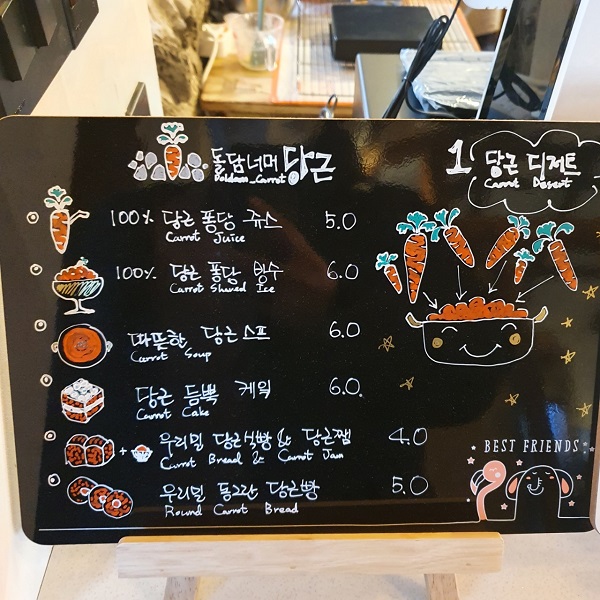 돌담너머 당근
Doldam_Carrot
1 당근 디저트
Carrot Desert
100% 당근 퐁당 쥬스 5.0
Carrot Juice
100% 당근 퐁당 빙수 6.0
Carrot Shaved Ice
따뜻한 당근스프 6.0
Carrot Soup
당근 듬뿍 케잌 6.0
Carrot Cake
우리밀 당근식빵 & 당근쨈 4.0
Carrot Bread & Carrot Jam
우리밀 동그란 당근빵 5.0
Round Carrot Bread
BEST FRIENDS